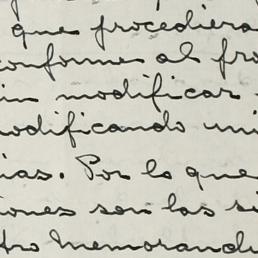 que procediera
conforme al pro
in modificar
odificando mi
ias. Por lo que
iones son las si
tro Memorandu